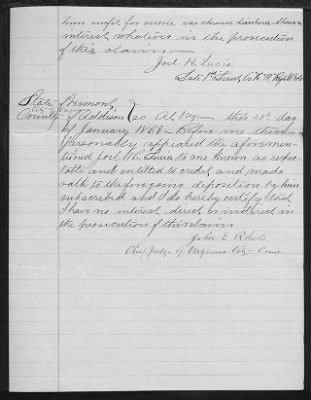 him unfit for service was chronic diarrhea I have no
interest whatever in the prosecution
of this claim —
Joel H. Lucia
Late 1st Lieut Co
State Vermont
City of Vergennes
County of Addison } ss At Vergennes this 20th day
of January 1869 — Before me then
personally appeared the aforemen-
tioned Joel H. Lucia to me known as respec-
table and entitled to credit and made
oath to the foregoing deposition by him
subscribed and I do hereby certify that
I have no interest direct or indirect in
the prosecution of this claim
John E. Roberts
Chief Judge of Vergennes City Court